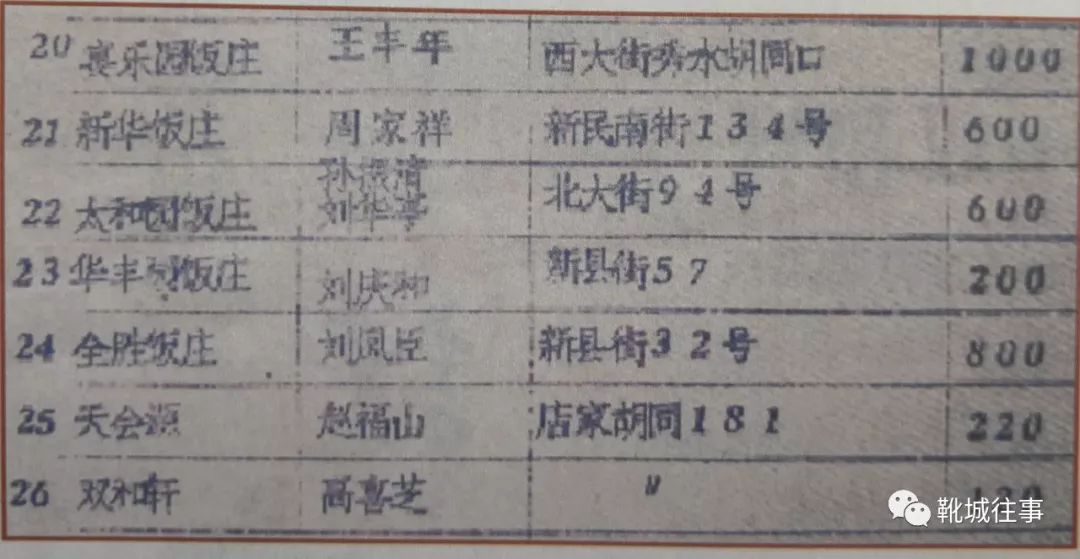 20 宴乐园饭庄 王丰年 西大街秀水胡同口 1000
21 新华饭庄 周家祥 新民南街134号 600
22 太和园饭庄 孙振清 刘华亭 北大街94号 600
23 华丰园饭庄 刘庆和 新县街57 200
24 全胜饭庄 刘凤臣 新县街32号 800
25 天会源 赵福山 店家胡同181 220
26 双和轩 高喜芝 〃
靴城往事